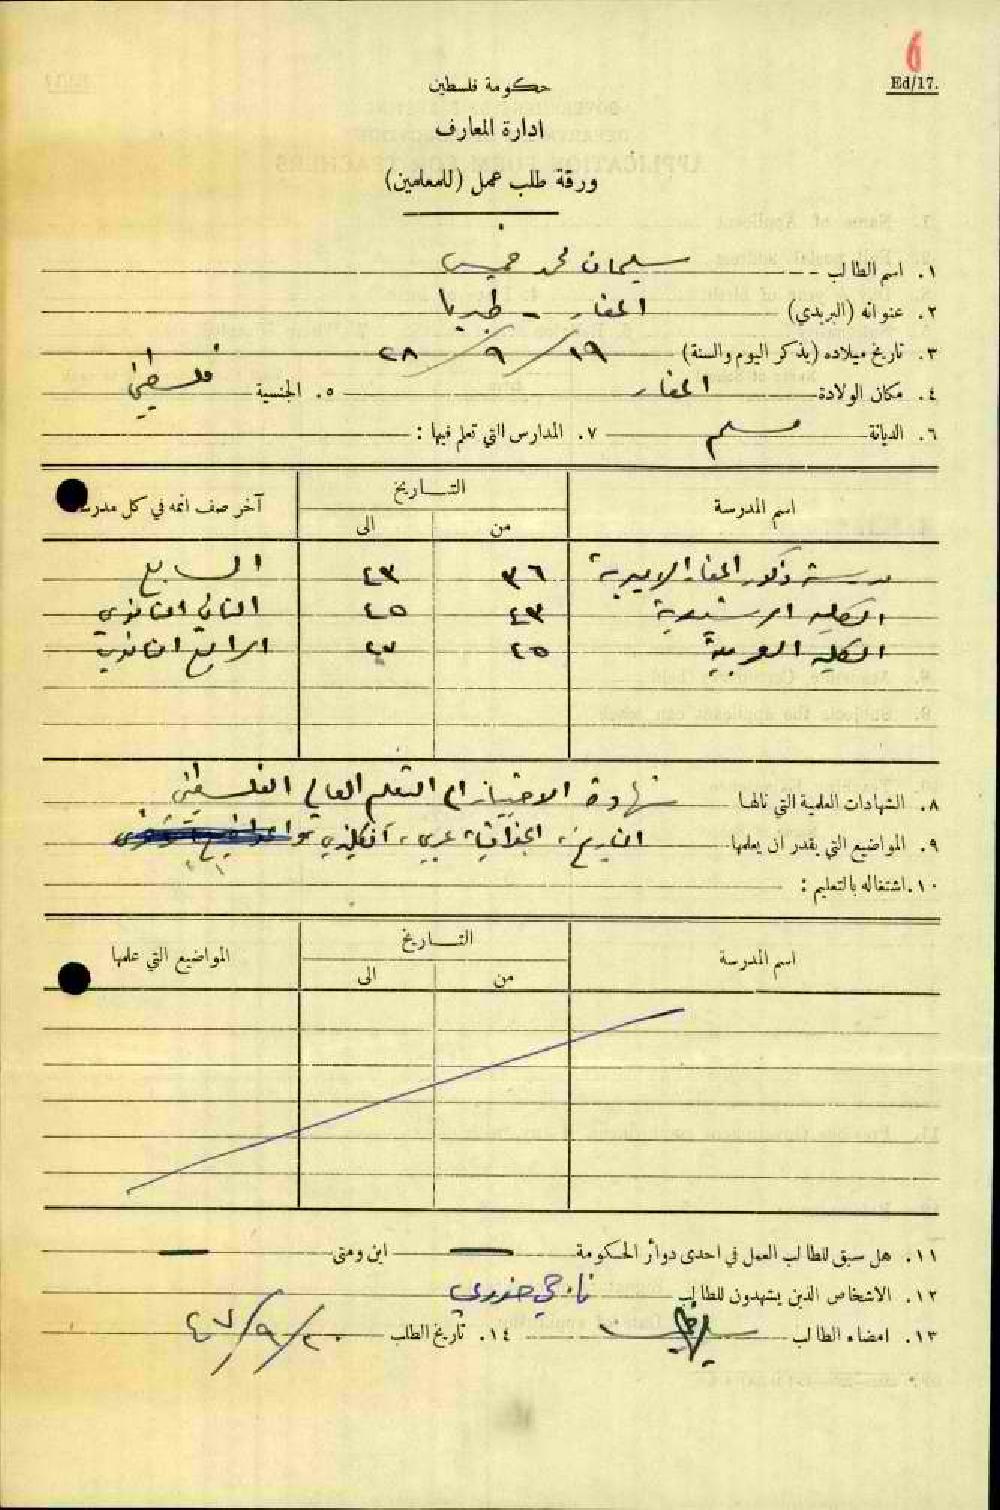 6
Ed/17.
حكومة فلسطين
ادارة المعارف
ورقة طلب عمل (للمعلمين)
١. اسم الطالب سليمان محمد خميس
٢. عنوانه (البريدي) المغار - طبريا
٣. تاريخ ميلاده (يذكر اليوم والسنة) ١٩/٩/٢٨
٤. مكان الولادة المغار ٥. الجنسية فلسطيني
٦. الديانة مسلم ٧. المدارس التي تعلم فيها :
اسم المدرسة التاريخ آخر صف اتمه في كل مدرسة
من الى
مدرسة ذكور المغار الاميرية ٣٦ ٤٣ السابع
الكلية الرشيدية ٤٣ ٤٥ الثاني الثانوي
الكلية العربية ٤٥ ٤٧ الرابع الثانوي
٨. الشهادات العلمية التي نالها شهادة الاجتياز الى التعلم العالي الفلسطيني
٩. المواضيع التي يقدر ان يعلمها التاريخ، الجغرافيا، عربي، انكليزي
١٠. اشتغاله بالتعليم :
اسم المدرسة التاريخ المواضيع التي علمها
من الى
١١. هل سبق للطالب العمل في احدى دوائر الحكومة — اين ومتى —
١٢. الاشخاص الذين يشهدون للطالب ناجي
١٣. امضاء الطالب ١٤. تاريخ الطلب ٢٠/٩/٤٧